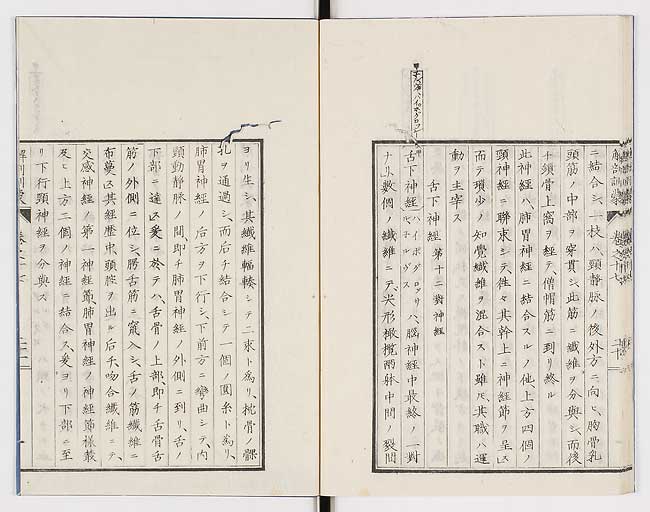 ニ結合シ、一枝ハ頸静脉ノ後外方ニ向ヒ、胸骨乳
頭筋ノ中部ヲ穿貫シ、此筋ニ纖維ヲ分與シ、而後
チ鎖骨上窩ヲ経テ、僧帽筋ニ到リ終ル
此神経ハ、肺胃神経ニ結合スルノ他、上方四個ノ
頸神経ニ聯束シテ、徃々其幹上ニ神経節ヲ呈ス、
而テ瑣少ノ知覺纖維ヲ混合スト雖𪜈、其職ハ運
動ヲ主宰ス
舌下神経 第十二對神経
舌下神経ハ、脳神経中最終ノ一對
ナリ、數個ノ纖維ニテ、尖形橄欖両躰中間ノ裂間
ヨリ生シ、其纖維輻輳シテ二束ト為リ、枕骨ノ髁
孔ヲ通過シ、而后チ結合シテ一個ノ圓糸ト為リ、
肺胃神経ノ后方ヲ下行シ、下前方ニ彎曲シテ、内
頸動静脉ノ間、即チ肺胃神経ノ外側ニ到リ、舌ノ
下部ニ達ス、爰ニ於テハ、舌骨ノ上部、即チ舌骨舌
筋ノ外側ニ位シ、膠舌筋ニ竄入シ、舌ノ筋纖維ニ
布蔓ス、其経歴中、頭腔ヲ出ル后チ、吻合纖維ニテ、
交感神経ノ第一神経節、肺胃神経ノ神経節様叢
及ヒ上方二個ノ神経ニ結合ス、爰ヨリ下部ニ至
リ下行頸神経ヲ分與ス